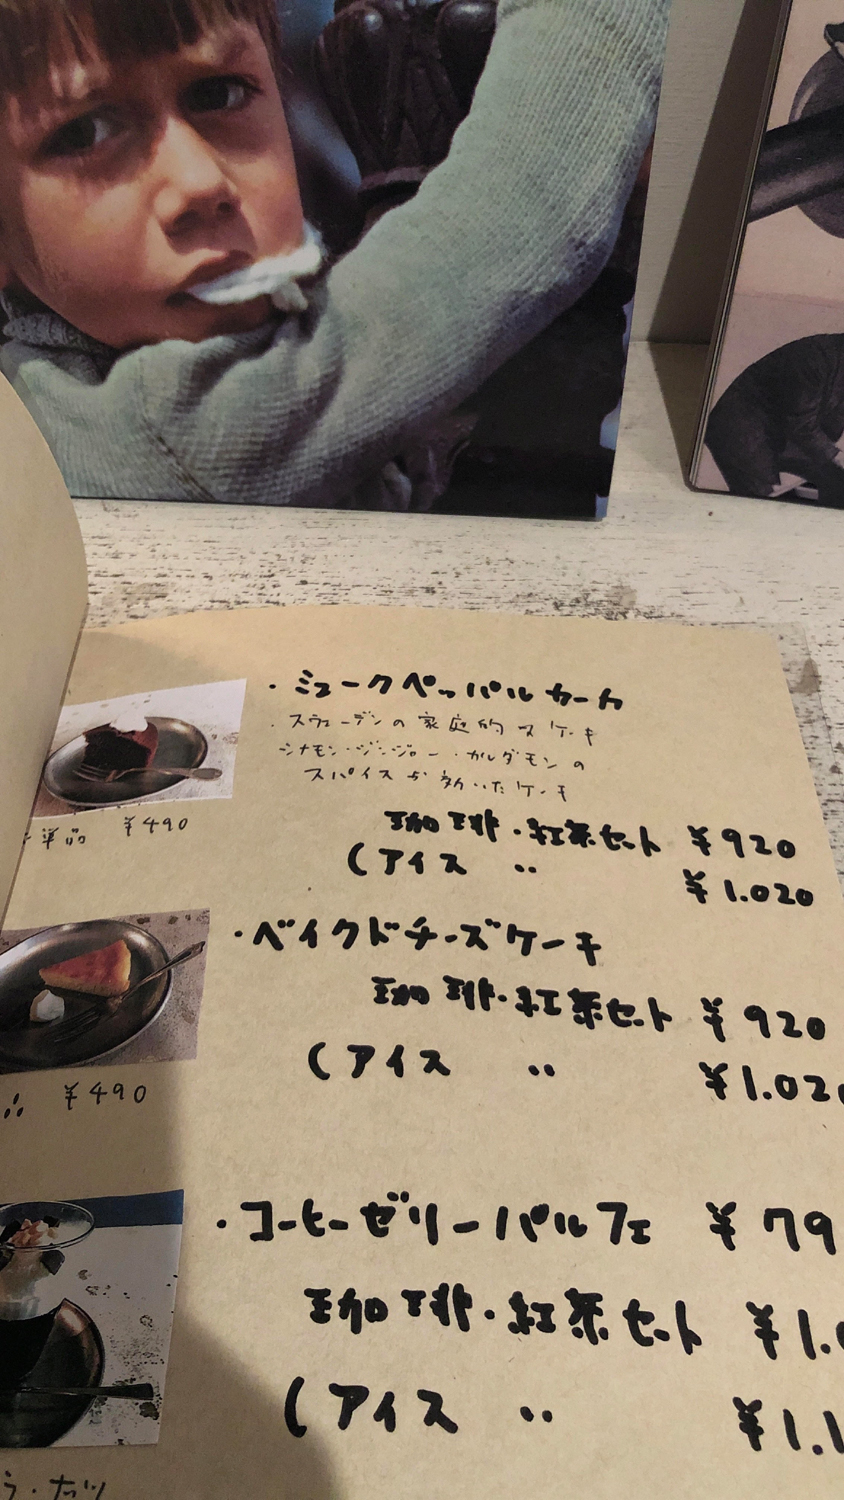 ・ミュークペッパルカーカ
・スウェーデンの家庭的なケーキ
シナモン・ジンジャー・カルダモンの
スパイスが効いたケーキ
単品 ¥490
珈琲・紅茶セット ¥920
(アイス 〃 ¥1.020
・ベイクドチーズケーキ
珈琲・紅茶セット ¥920
(アイス 〃 ¥1.020
¥490
・コーヒーゼリーパルフェ ¥79
珈琲・紅茶セット ¥1.
(アイス 〃 ¥1.1
・ナッツ